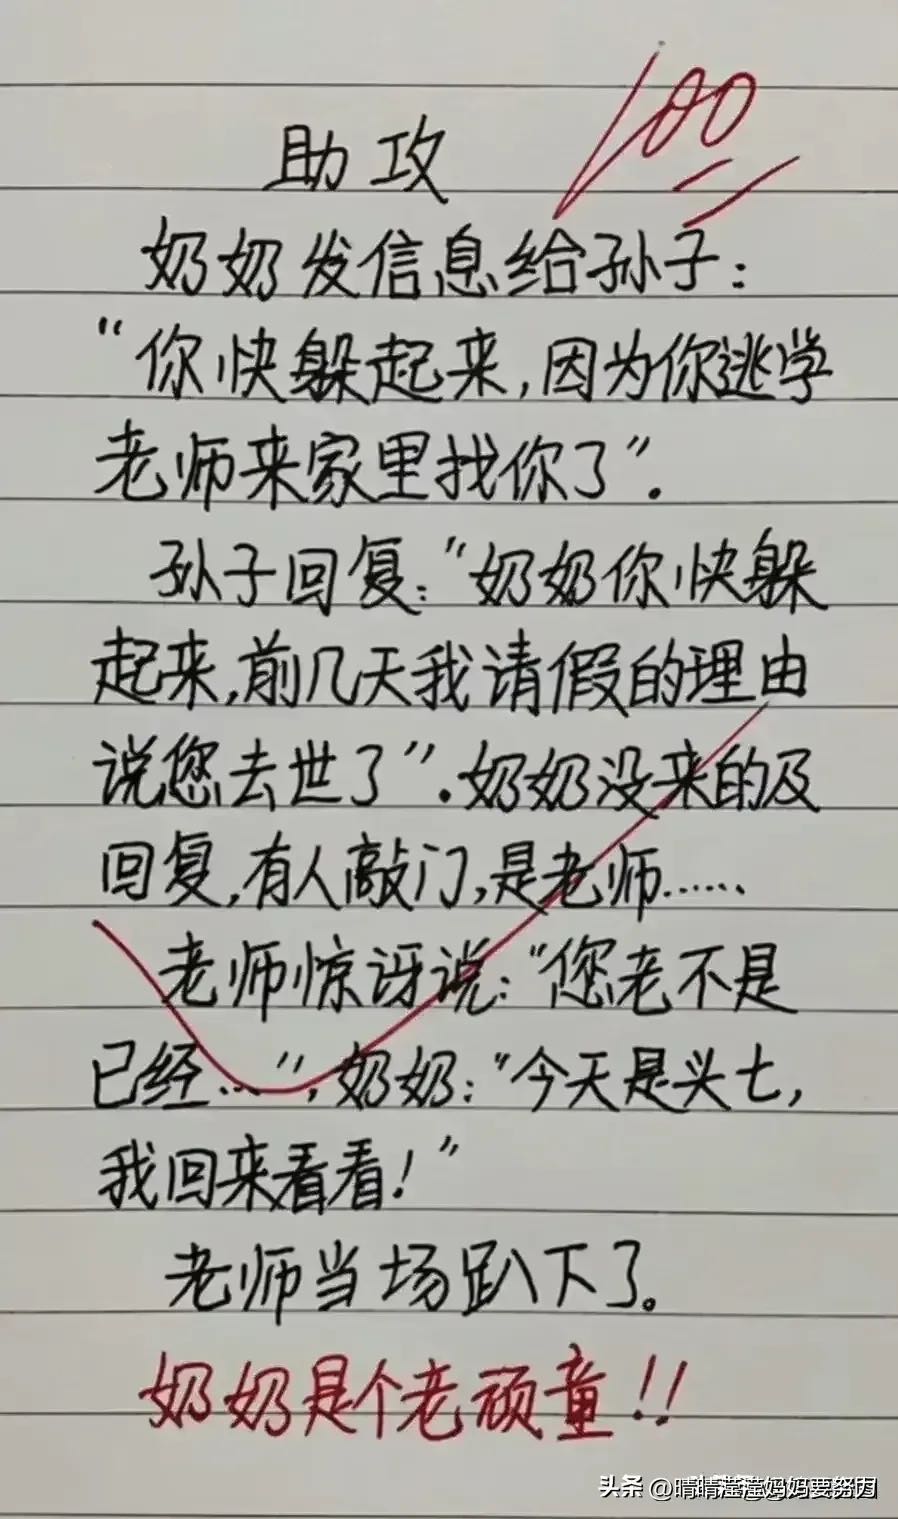 100
助攻
奶奶发信息给孙子：
“你快躲起来，因为你逃学
老师来家里找你了”.
孙子回复：“奶奶你快躲
起来，前几天我请假的理由
说您去世了”.奶奶没来的及
回复，有人敲门，是老师……
老师惊讶说：“您老不是
已经…”，奶奶：“今天是头七，
我回来看看！”
老师当场趴下了。
奶奶是个老顽童！！
头条 @晴晴滢滢妈妈要努力